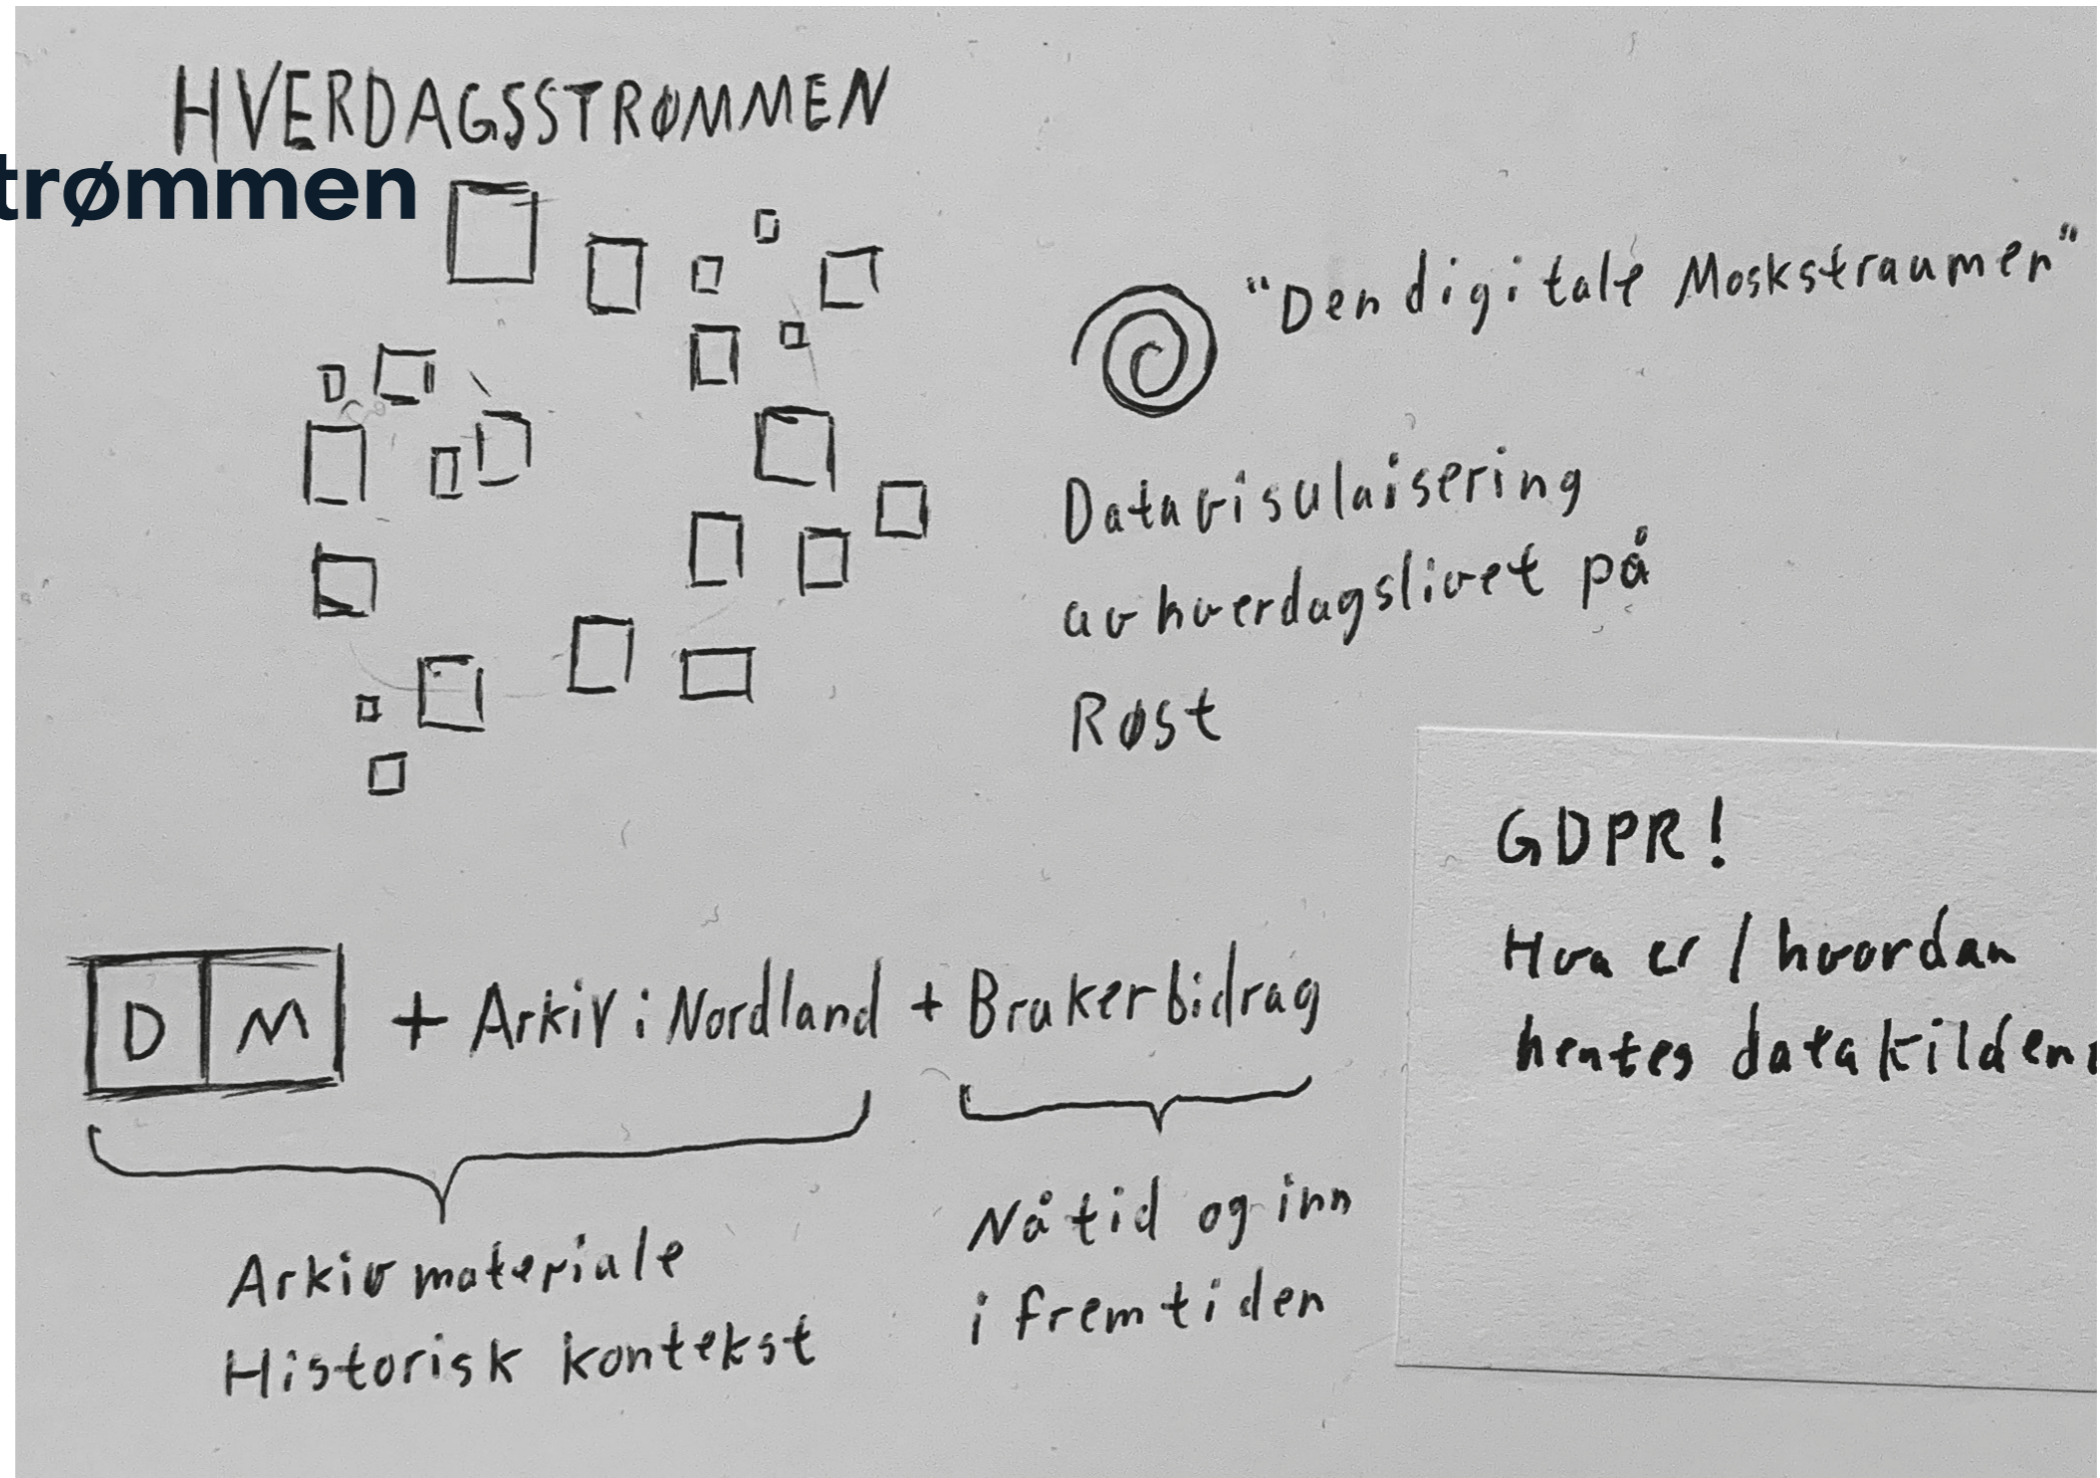 HVERDAGSSTRØMMEN
trømmen
"Den digitale Moskstraumen"
Datavisulaisering
av hverdagslivet på
Røst
GDPR!
Hva er / hvordan
hentes datakilden
D M + Arkiv i Nordland + Brukerbidrag
Arkivmateriale
Historisk kontekst
Nåtid og inn
i fremtiden